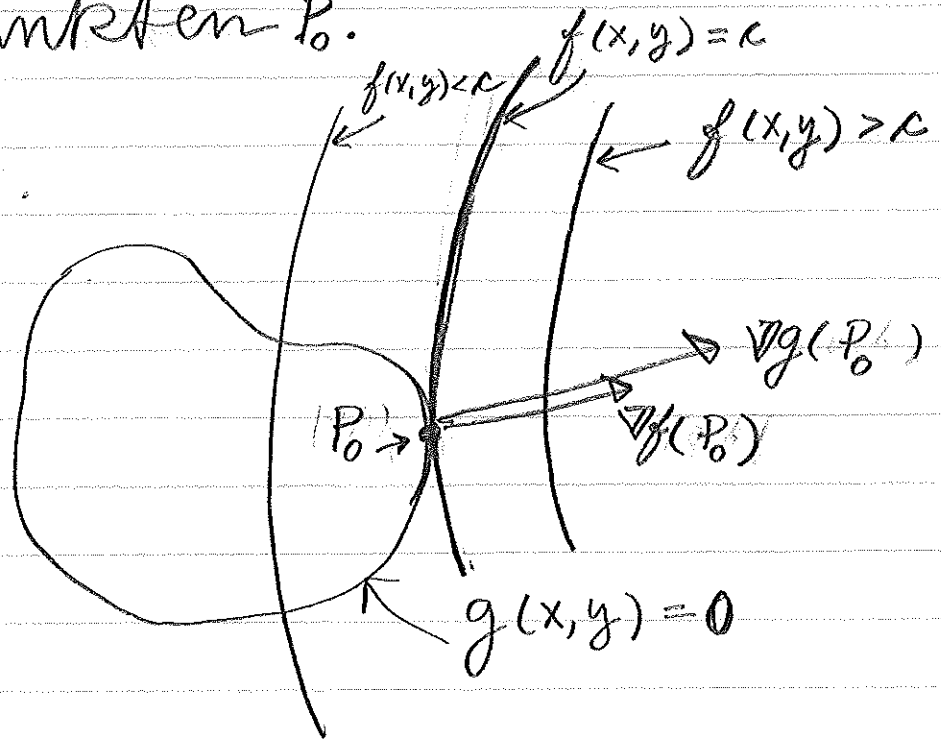 nkten P₀.
f(x,y) = c
f(x,y) < c
f(x,y) > c
∇g(P₀)
∇f(P₀)
P₀
g(x,y) = 0